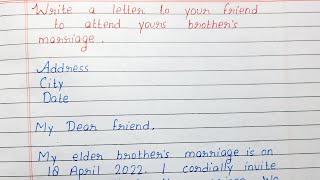 Write a letter to your friend
to attend yours brother's
marriage.
Address
City
Date
My Dear friend,
My elder brother's marriage is on
18 April 2022. I cordially invite